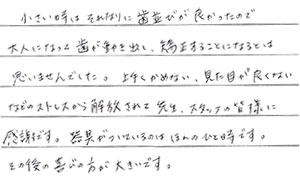 小さい時は それなりに歯並びが良かったので
大人になって歯が動き出し、矯正することになるとは
思いませんでした。上手くかめない、見た目が良くない
などのストレスから解放されて 先生、スタッフの皆様に
感謝です。器具がついているのは ほんのひと時です。
その後の喜びの方が大きいです。